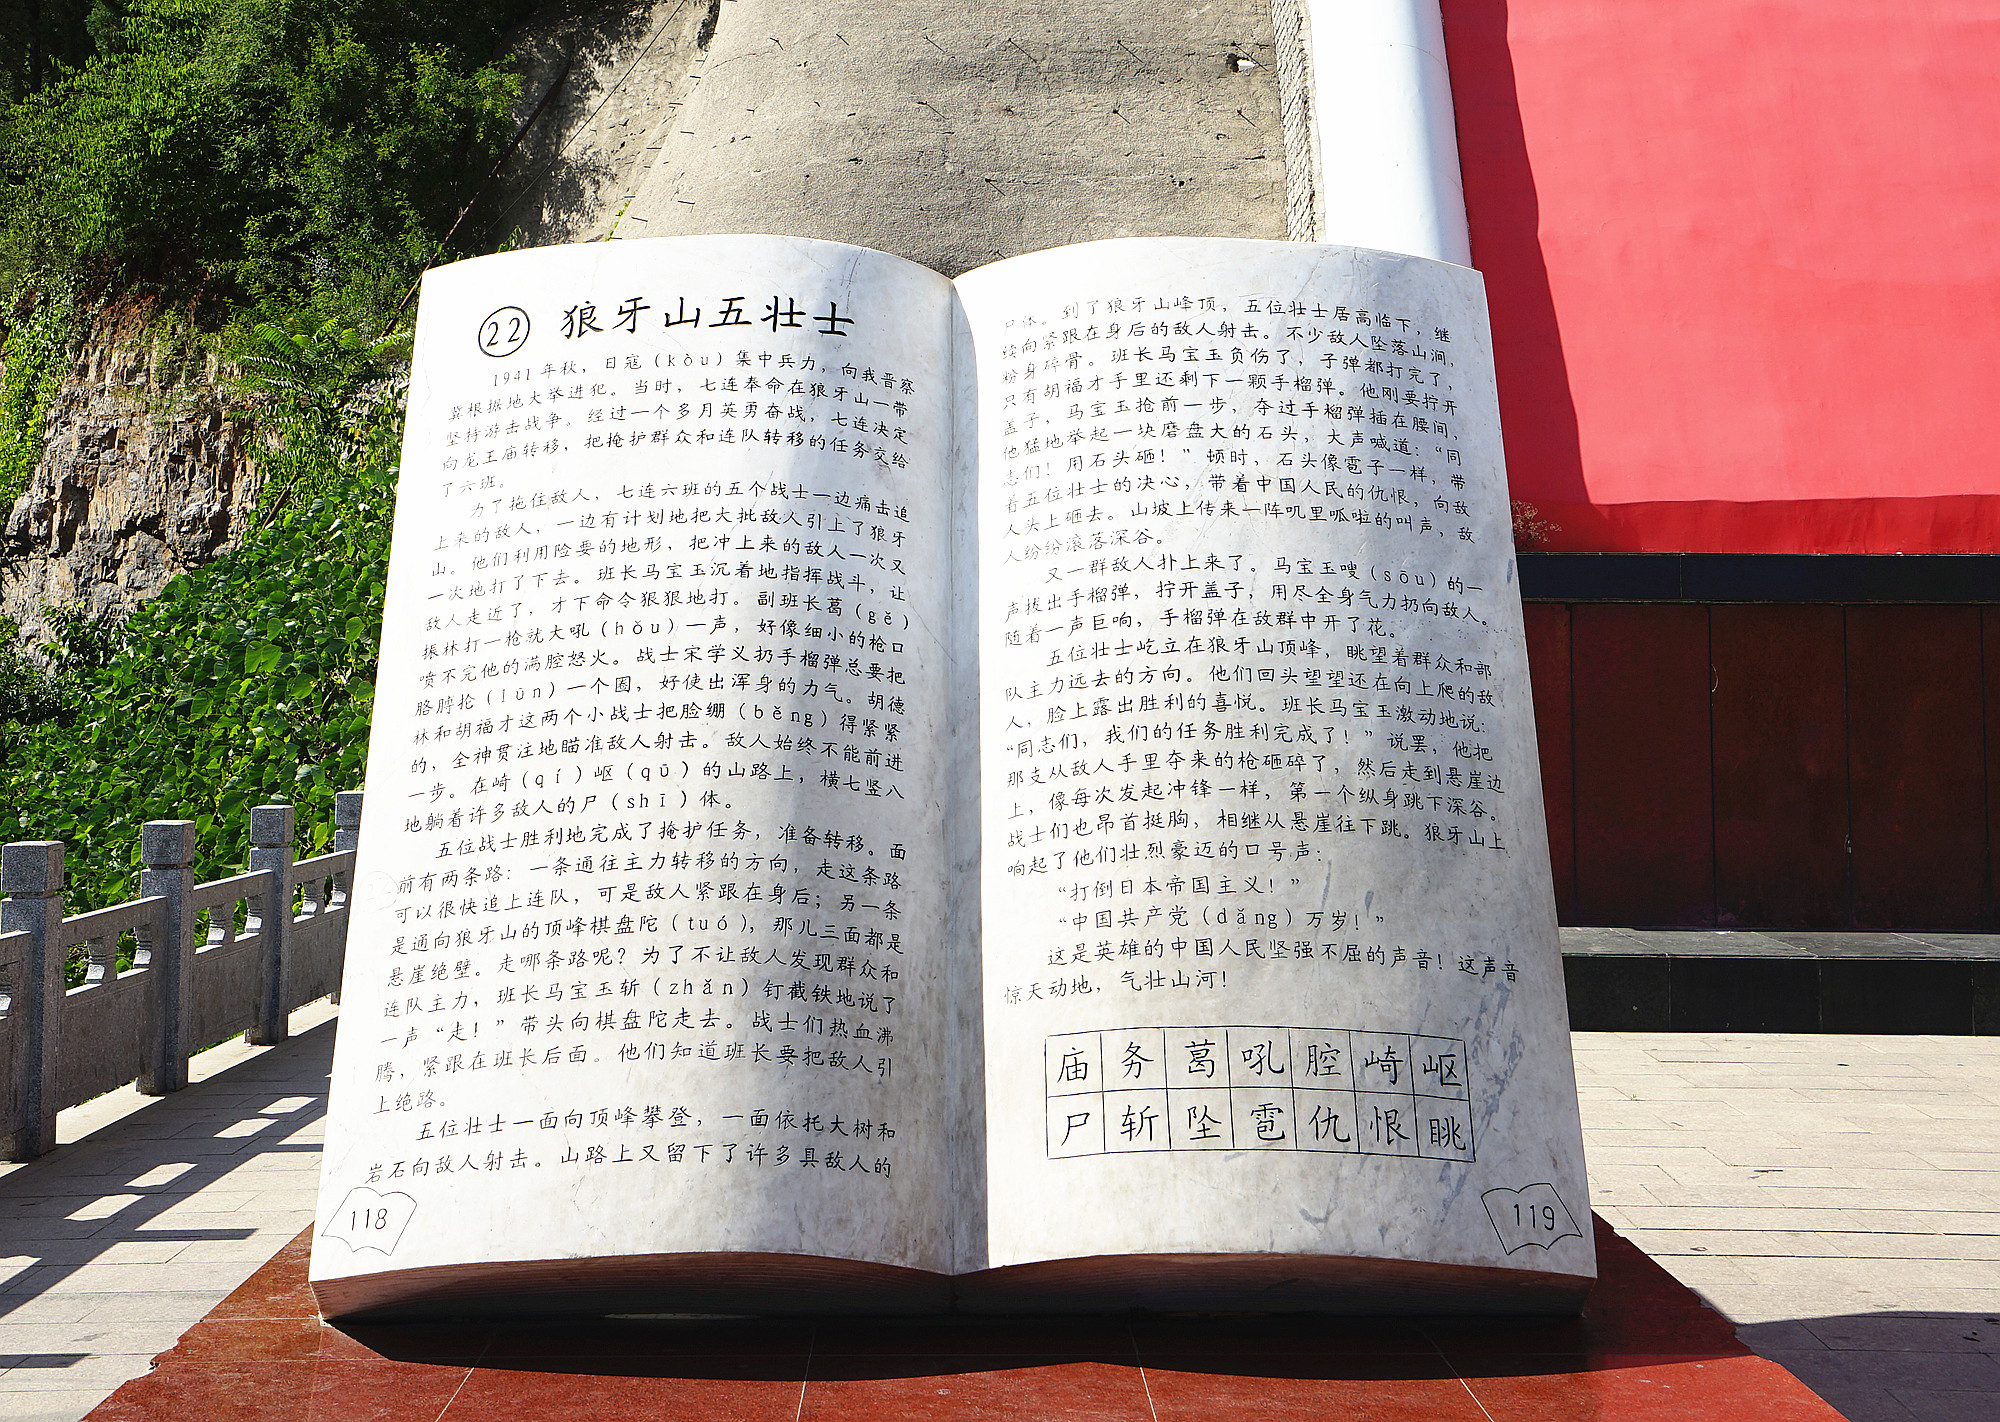 22 狼牙山五壮士
1941年秋，日寇（kòu）集中兵力，向我晋察
冀根据地大举进犯。当时，七连奉命在狼牙山一带
坚持游击战争。经过一个多月英勇奋战，七连决定
向龙王庙转移，把掩护群众和连队转移的任务交给
了六班。
为了拖住敌人，七连六班的五个战士一边痛击追
上来的敌人，一边有计划地把大批敌人引上了狼牙
山。他们利用险要的地形，把冲上来的敌人一次又
一次地打了下去。班长马宝玉沉着地指挥战斗，让
敌人走近了，才下命令狠狠地打。副班长葛（gě）
振林打一枪就大吼（hǒu）一声，好像细小的枪口
喷不完他的满腔怒火。战士宋学义扔手榴弹总要把
胳膊抡（lūn）一个圈，好使出浑身的力气。胡德
林和胡福才这两个小战士把脸绷（běng）得紧紧
的，全神贯注地瞄准敌人射击。敌人始终不能前进
一步。在崎（qí）岖（qū）的山路上，横七竖八
地躺着许多敌人的尸（shī）体。
五位战士胜利地完成了掩护任务，准备转移。面
前有两条路：一条通往主力转移的方向，走这条路
可以很快追上连队，可是敌人紧跟在身后；另一条
是通向狼牙山的顶峰棋盘陀（tuó），那儿三面都是
悬崖绝壁。走哪条路呢？为了不让敌人发现群众和
连队主力，班长马宝玉斩（zhǎn）钉截铁地说了
一声“走！”带头向棋盘陀走去。战士们热血沸
腾，紧跟在班长后面。他们知道班长要把敌人引
上绝路。
五位壮士一面向顶峰攀登，一面依托大树和
岩石向敌人射击。山路上又留下了许多具敌人的
118
尸体。到了狼牙山峰顶，五位壮士居高临下，继
续向紧跟在身后的敌人射击。不少敌人坠落山涧，
粉身碎骨。班长马宝玉负伤了，子弹都打完了，
只有胡福才手里还剩下一颗手榴弹。他刚要拧开
盖子，马宝玉抢前一步，夺过手榴弹插在腰间，
他猛地举起一块磨盘大的石头，大声喊道：“同
志们！用石头砸！”顿时，石头像雹子一样，带
着五位壮士的决心，带着中国人民的仇恨，向敌
人头上砸去。山坡上传来一阵叽里呱啦的叫声，敌
人纷纷滚落深谷。
又一群敌人扑上来了。马宝玉嗖（sōu）的一
声拔出手榴弹，拧开盖子，用尽全身气力扔向敌人。
随着一声巨响，手榴弹在敌群中开了花。
五位壮士屹立在狼牙山顶峰，眺望着群众和部
队主力远去的方向。他们回头望望还在向上爬的敌
人，脸上露出胜利的喜悦。班长马宝玉激动地说：
“同志们，我们的任务胜利完成了！”说罢，他把
那支从敌人手里夺来的枪砸碎了，然后走到悬崖边
上，像每次发起冲锋一样，第一个纵身跳下深谷。
战士们也昂首挺胸，相继从悬崖往下跳。狼牙山上
响起了他们壮烈豪迈的口号声：
“打倒日本帝国主义！”
“中国共产党（dǎng）万岁！”
这是英雄的中国人民坚强不屈的声音！这声音
惊天动地，气壮山河！
庙 务 葛 吼 腔 崎 岖
尸 斩 坠 雹 仇 恨 眺
119